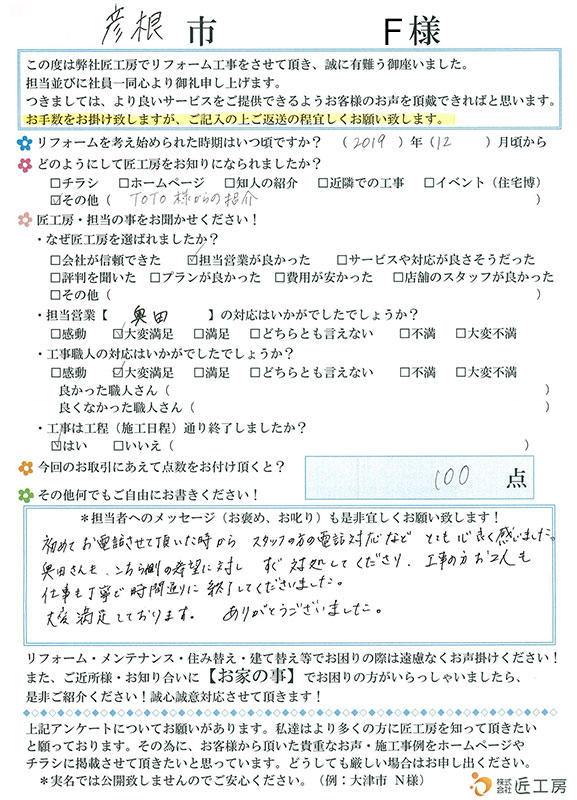 彦根 市 F様
この度は弊社匠工房でリフォーム工事をさせて頂き、誠に有難う御座いました。
担当並びに社員一同心より御礼申し上げます。
つきましては、より良いサービスをご提供できるようお客様のお声を頂戴できればと思います。
お手数をお掛け致しますが、ご記入の上ご返送の程宜しくお願い致します。
リフォームを考え始められた時期はいつ頃ですか？ （2019）年（12 ）月頃から
どのようにして匠工房をお知りになられましたか？
□チラシ □ホームページ □知人の紹介 □近隣での工事 □イベント（住宅博）
☑その他（ TOTO様からの紹介 ）
匠工房・担当の事をお聞かせください！
・なぜ匠工房を選ばれましたか？
□会社が信頼できた ☑担当営業が良かった □サービスや対応が良さそうだった
□評判を聞いた □プランが良かった □費用が安かった □店舗のスタッフが良かった
□その他（ ）
・担当営業【 奥田 】の対応はいかがでしたでしょうか？
□感動 ☑大変満足 □満足 □どちらとも言えない □不満 □大変不満
・工事職人の対応はいかがでしたでしょうか？
□感動 ☑大変満足 □満足 □どちらとも言えない □不満 □大変不満
良かった職人さん（ ）
良くなかった職人さん（ ）
・工事は工程（施工日程）通り終了しましたか？
☑はい □いいえ（ ）
今回のお取引にあえて点数をお付け頂くと？ 100 点
その他何でもご自由にお書きください！
＊担当者へのメッセージ（お褒め、お叱り）も是非宜しくお願い致します！
初めてお電話させて頂いた時から スタッフの方の電話対応など とても心良く感じました。
奥田さんも、こちら側の希望に対し すぐ対処してくださり、工事の方お2人も
仕事も丁寧で時間通りに終了してくださいました。
大変満足しております。 ありがとうございました。
リフォーム・メンテナンス・住み替え・建て替え等でお困りの際は遠慮なくお声掛けください！
また、ご近所様・お知り合いに【お家の事】でお困りの方がいらっしゃいましたら、
是非ご紹介ください！誠心誠意対応させて頂きます！
上記アンケートについてお願いがあります。私達はより多くの方に匠工房を知って頂きたい
と願っております。その為に、お客様から頂いた貴重なお声・施工事例をホームページや
チラシに掲載させて頂きたいと思っています。どうしても厳しい場合はお申し出ください。
＊実名では公開致しませんのでご安心ください。（例：大津市 N様）
株式会社 匠工房